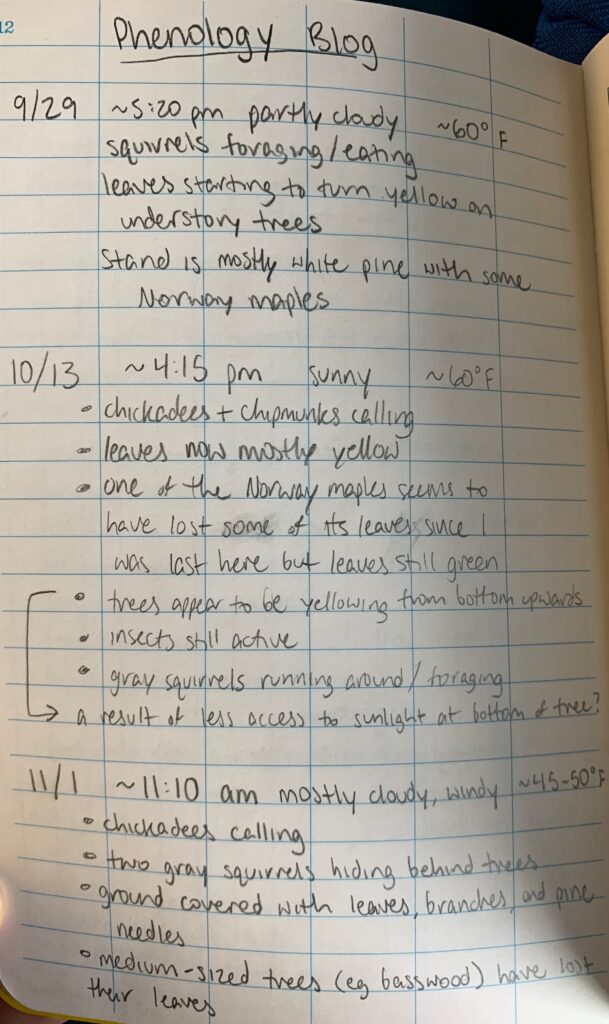 12
Phenology Blog
9/29 ~5:20 pm partly cloudy ~60°F
squirrels foraging/eating
leaves starting to turn yellow on
understory trees
Stand is mostly white pine with some
Norway maples
10/13 ~4:15 pm sunny ~60°F
• chickadees + chipmunks calling
• leaves now mostly yellow
• one of the Norway maples seems to
have lost some of its leaves since I
was last here but leaves still green
• trees appear to be yellowing from bottom upwards
• insects still active
• gray squirrels running around/foraging
→ a result of less access to sunlight at bottom of tree?
11/1 ~11:10 am mostly cloudy, windy ~45-50°F
• chickadees calling
• two gray squirrels hiding behind trees
• ground covered with leaves, branches, and pine
needles
• medium-sized trees (eg basswood) have lost
their leaves